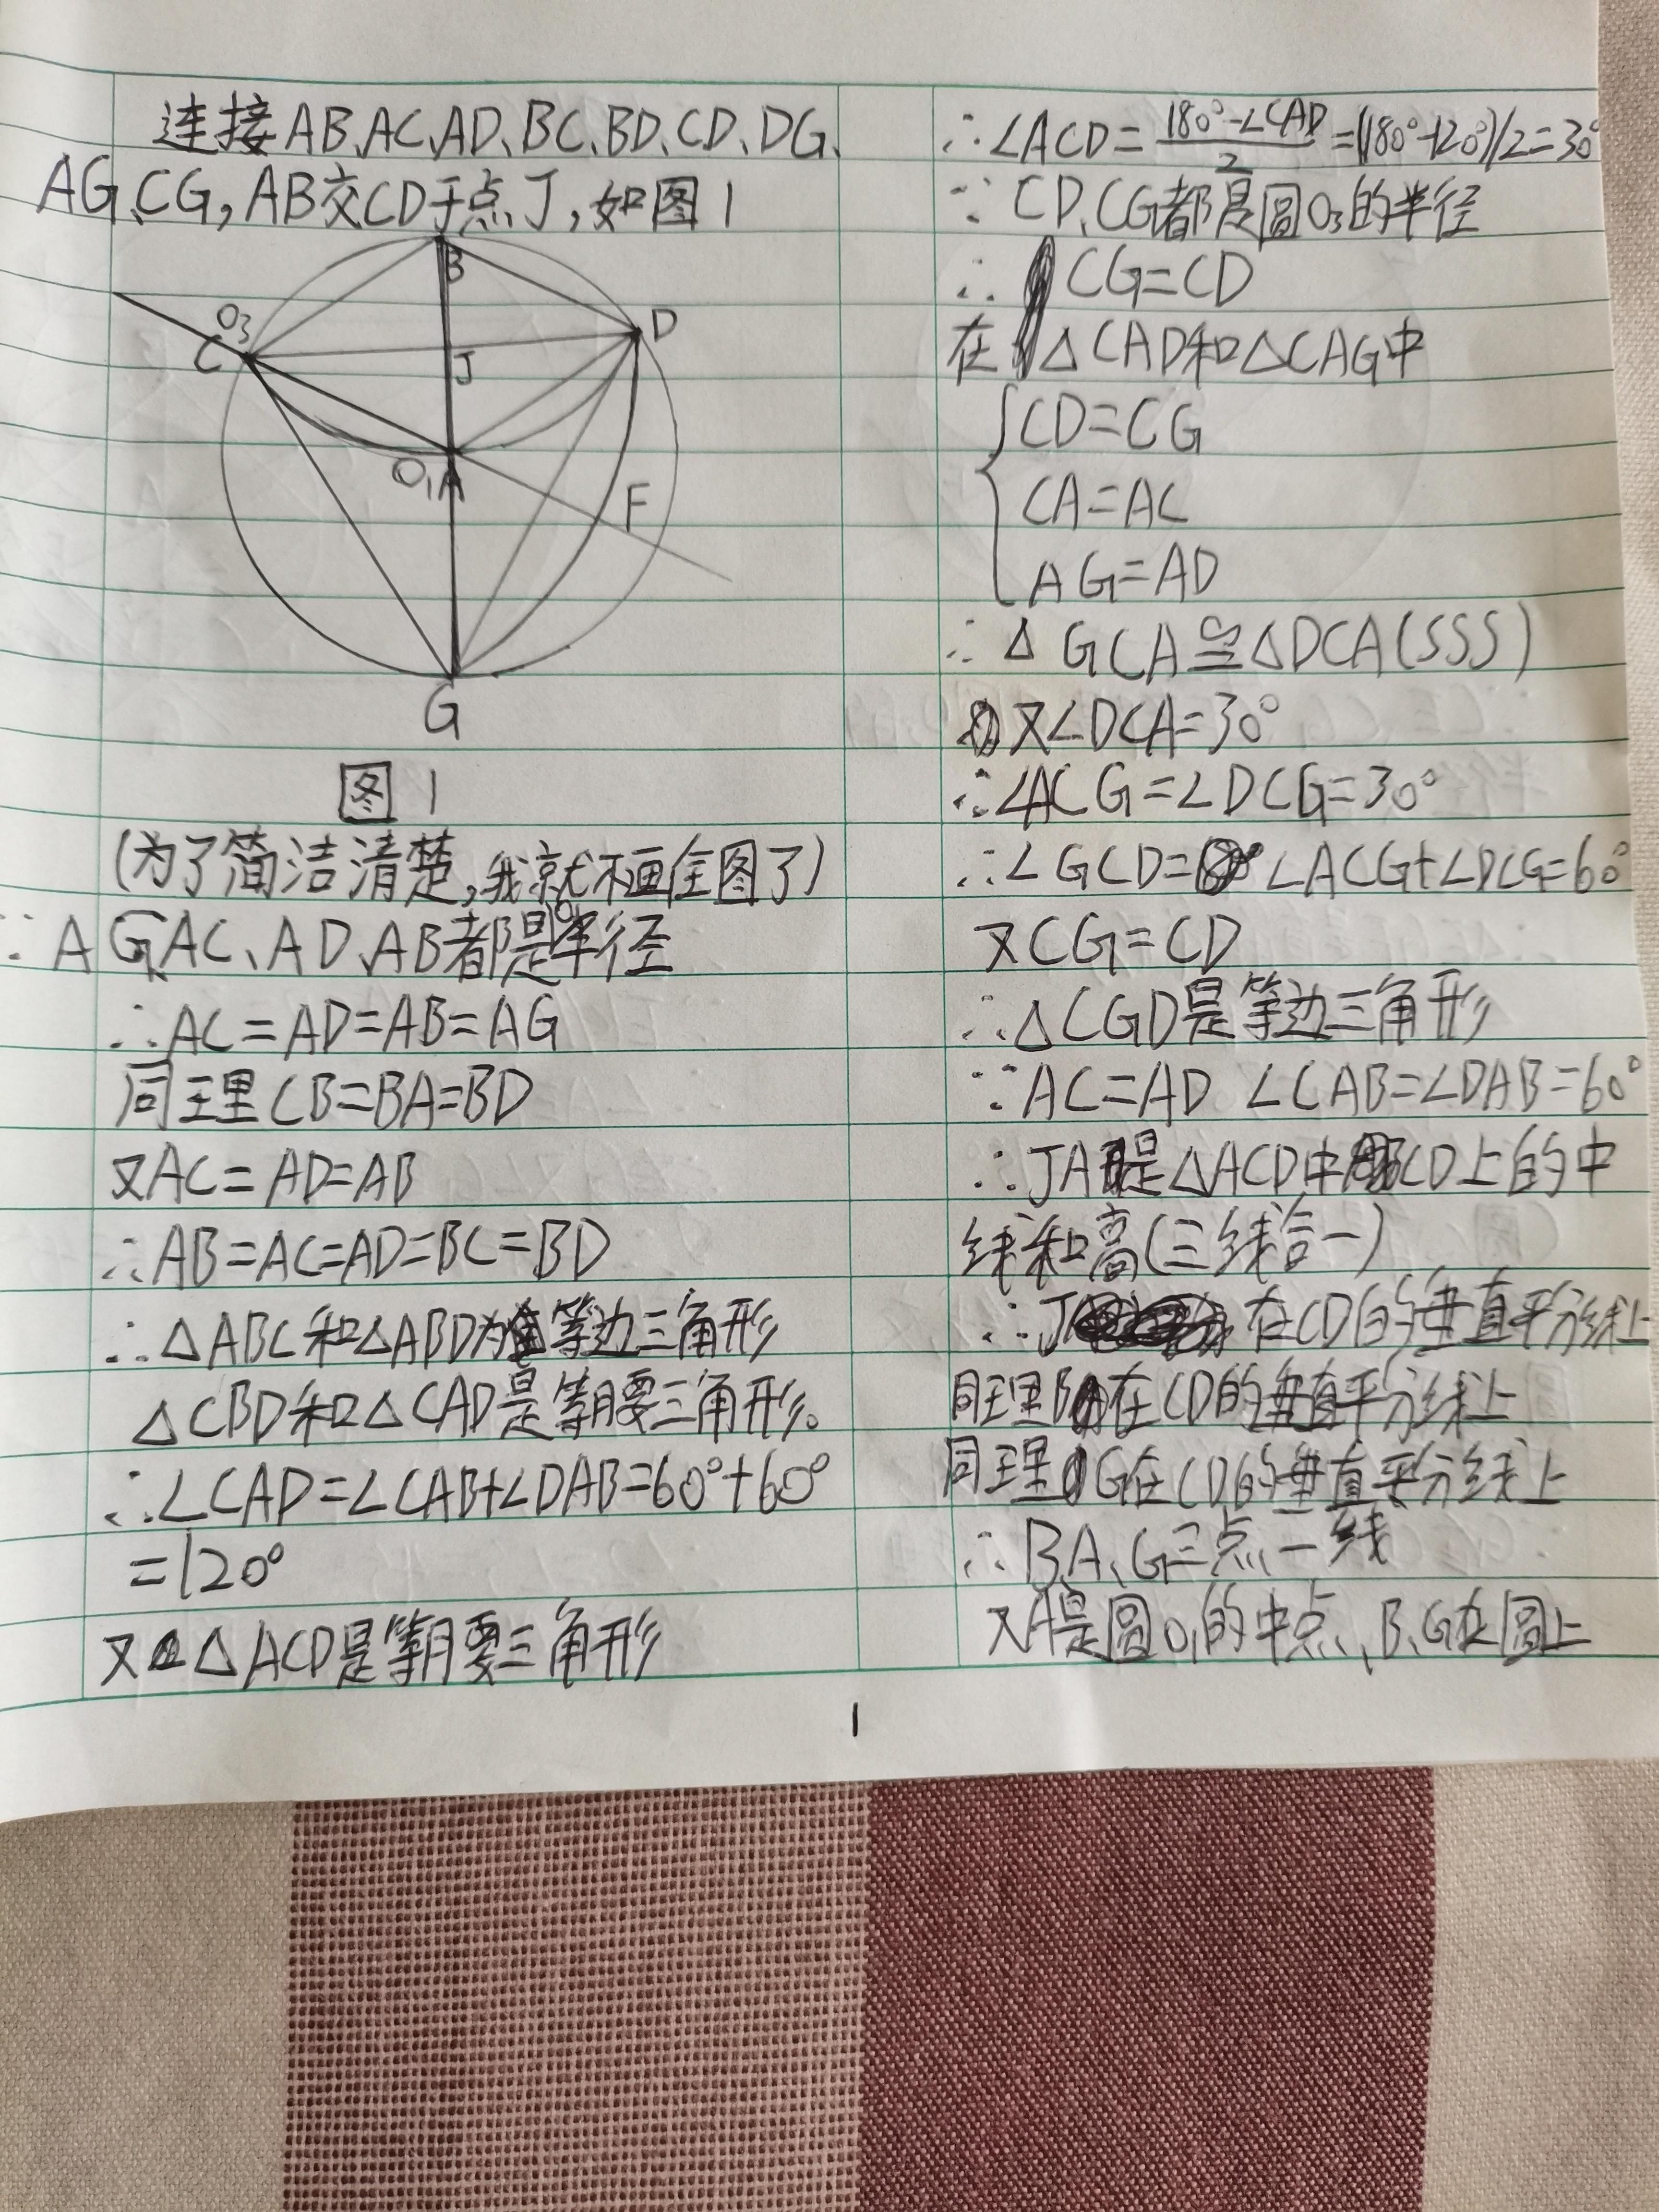 连接AB、AC、AD、BC、BD、CD、DG、
AG、CG,AB交CD于点J,如图1
B
O₃
D
C
J
O₁A
F
G
图1
(为了简洁清楚,我就不画全图了)
∵AG、AC、AD、AB都是半径
∴AC=AD=AB=AG
同理CB=BA=BD
又AC=AD=AB
∴AB=AC=AD=BC=BD
∴△ABC和△ABD为等边三角形
△CBD和△CAD是等腰三角形。
∴∠CAD=∠CAB+∠DAB=60°+60°
=120°
又△ACD是等腰三角形
∴∠ACD=(180°-∠CAD)/2=(180°-120°)/2=30°
∵CD、CG都是圆O₃的半径
∴CG=CD
在△CAD和△CAG中
{CD=CG
CA=AC
AG=AD
∴△GCA≌△DCA(SSS)
又∠DCA=30°
∴∠ACG=∠DCG=30°
∴∠GCD=∠ACG+∠DCG=60°
又CG=CD
∴△CGD是等边三角形
∵AC=AD ∠CAB=∠DAB=60°
∴JA是△ACD中CD上的中
线和高(三线合一)
∴J在CD的垂直平分线上
同理B在CD的垂直平分线上
同理G在CD的垂直平分线上
∴B、A、G三点一线
又A是圆O₁的中点、B、G在圆上
1